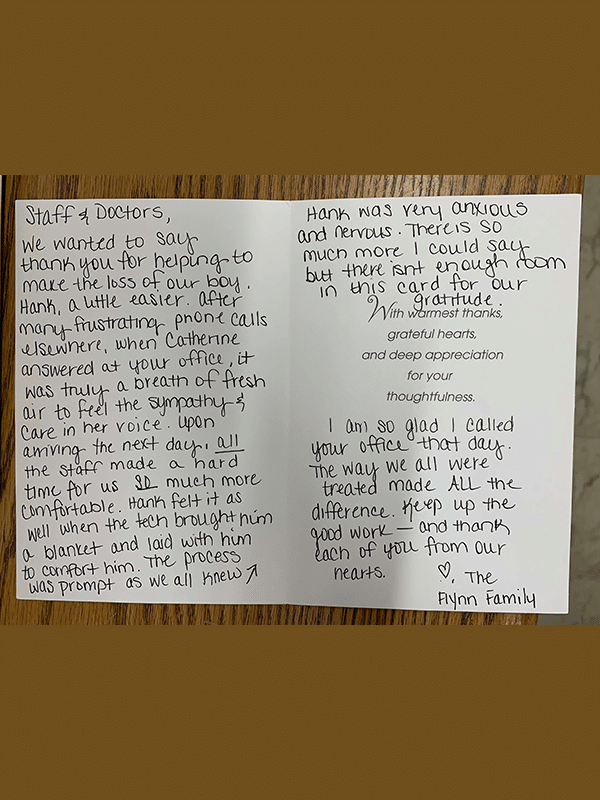 Staff & Doctors,
We wanted to say
thank you for helping to
make the loss of our boy,
Hank, a little easier. After
many frustrating phone calls
elsewhere, when Catherine
answered at your office, it
was truly a breath of fresh
air to feel the sympathy &
care in her voice. Upon
arriving the next day, all
the staff made a hard
time for us so much more
comfortable. Hank felt it as
well when the tech brought him
a blanket and laid with him
to comfort him. The process
was prompt as we all knew ↗
Hank was very anxious
and nervous. There is so
much more I could say
but there isnt enough room
in this card for our
gratitude.
With warmest thanks,
grateful hearts,
and deep appreciation
for your
thoughtfulness.
I am so glad I called
your office that day.
The way we all were
treated made ALL the
difference. Keep up the
good work — and thank
each of you from our
hearts.
♡, The
Flynn Family